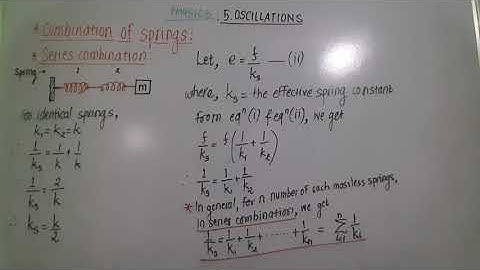 PHYSICS 5. OSCILLATIONS
* Combination of springs:
* Series combination:
Spring 1 2
m
for identical springs,
k₁=k₂=k
∴ 1/kₛ = 1/k + 1/k
1/kₛ = 2/k
∴ kₛ = k/2
Let, e = f/kₛ — (ii)
where, kₛ = the effective spring constant
from eqⁿ(i) & eqⁿ(ii), we get
f/kₛ = f(1/k₁ + 1/k₂)
∴ 1/kₛ = 1/k₁ + 1/k₂
* In general, for n number of each massless springs,
in series combination, we get
1/kₛ = 1/k₁ + 1/k₂ + ...... + 1/kₙ = ∑ⁿᵢ₌₁ 1/kᵢ